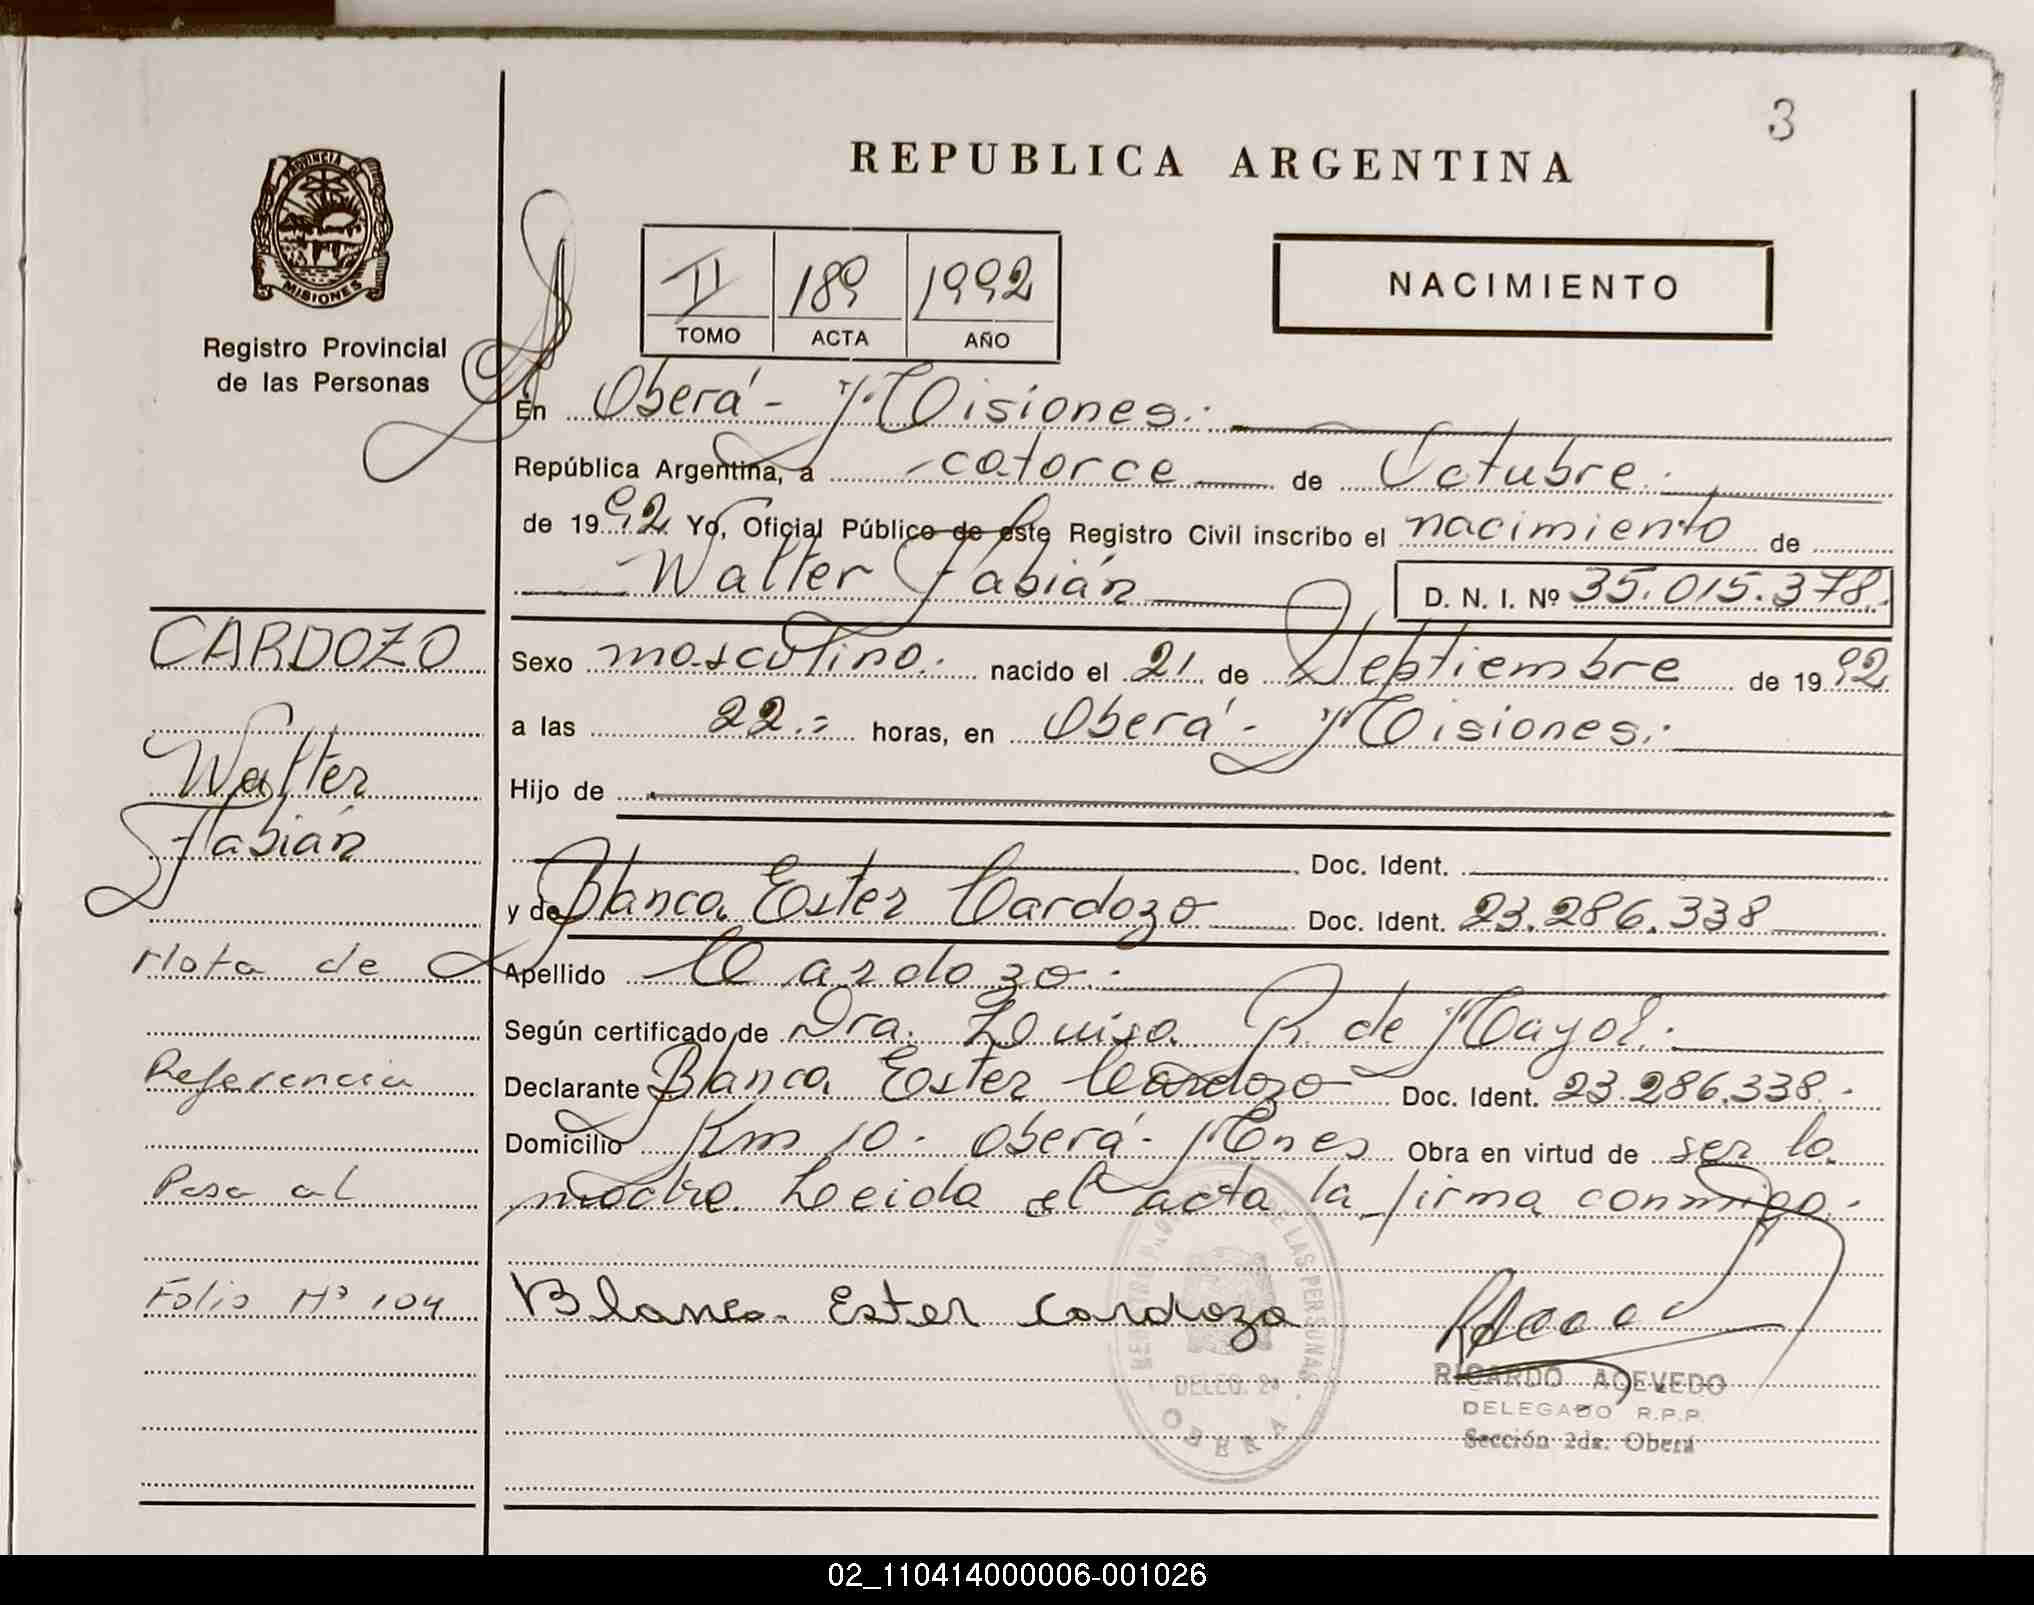 3
REPUBLICA ARGENTINA
PROVINCIA DE
MISIONES
Registro Provincial
de las Personas
II 189 1992
TOMO ACTA AÑO
NACIMIENTO
En Oberá - Misiones.-
República Argentina, a catorce de Octubre.
de 1992. Yo, Oficial Público de este Registro Civil inscribo el nacimiento de
Walter Fabián D. N. I. Nº 35.015.378.
Sexo masculino. nacido el 21 de Septiembre de 1992
a las 22.= horas, en Oberá - Misiones.-
Hijo de
Doc. Ident.
y de Blanca Ester Cardozo Doc. Ident. 23.286.338
Apellido Cardozo.-
Según certificado de Dra. Luisa R. de Mayol.-
Declarante Blanca Ester Cardozo Doc. Ident. 23.286.338.-
Domicilio Km 10. Oberá - Mnes Obra en virtud de ser la
madre. Leida el acta la firma conmigo.-
Blanca Ester Cardozo
REGISTRO PROVINCIAL DE LAS PERSONAS
DELEG. 2ª
OBERA
RICARDO ACEVEDO
DELEGADO R.P.P.
Sección 2da. Oberá
CARDOZO
Walter
Fabián
Nota de
Referencia
Pasa al
Folio Nº 104
02_110414000006-001026